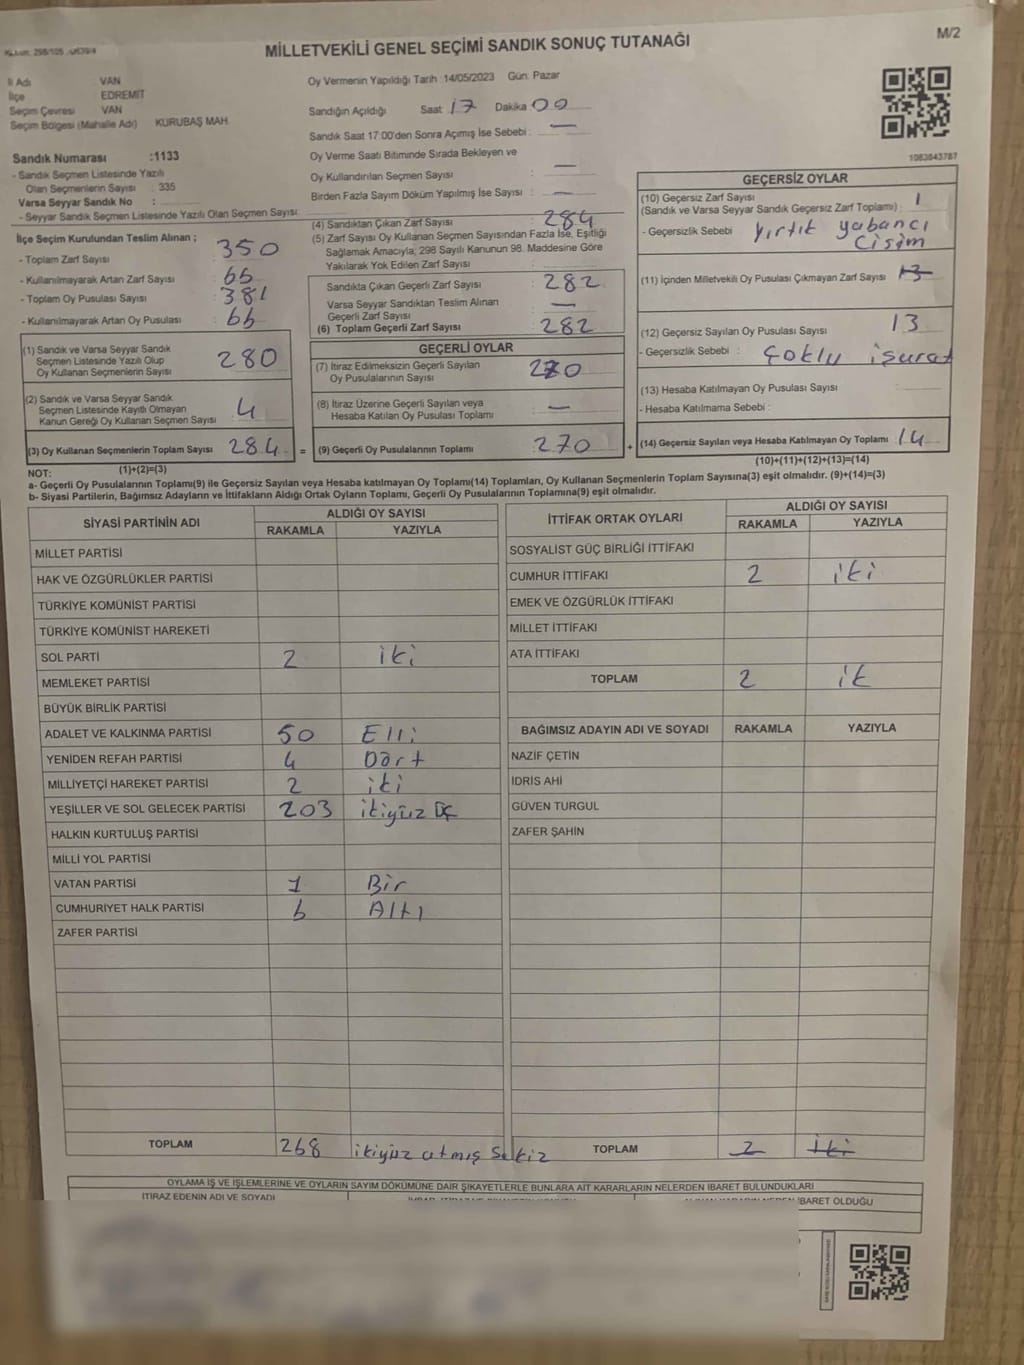 MİLLETVEKİLİ GENEL SEÇİMİ SANDIK SONUÇ TUTANAĞI
M/2
İl Adı VAN
İlçe EDREMİT
Seçim Çevresi VAN
Seçim Bölgesi (Mahalle Adı) KURUBAŞ MAH.
Oy Vermenin Yapıldığı Tarih 14/05/2023 Gün: Pazar
Sandığın Açıldığı Saat 17 Dakika 00
Sandık Saat 17:00'den Sonra Açımış İse Sebebi : —
Oy Verme Saati Bitiminde Sırada Bekleyen ve
Oy Kullandırılan Seçmen Sayısı : —
Birden Fazla Sayım Döküm Yapılmış İse Sayısı : —
1083843787
Sandık Numarası :1133
- Sandık Seçmen Listesinde Yazılı
Olan Seçmenlerin Sayısı : 335
Varsa Seyyar Sandık No :
- Seyyar Sandık Seçmen Listesinde Yazılı Olan Seçmen Sayısı
İlçe Seçim Kurulundan Teslim Alınan ;
- Toplam Zarf Sayısı 350
- Kullanılmayarak Artan Zarf Sayısı 66
- Toplam Oy Pusulası Sayısı 381
- Kullanılmayarak Artan Oy Pusulası 66
(1) Sandık ve Varsa Seyyar Sandık
Seçmen Listesinde Yazılı Olup
Oy Kullanan Seçmenlerin Sayısı 280
(2) Sandık ve Varsa Seyyar Sandık
Seçmen Listesinde Kayıtlı Olmayan
Kanun Gereği Oy Kullanan Seçmen Sayısı 4
(3) Oy Kullanan Seçmenlerin Toplam Sayısı 284 =
(1)+(2)=(3)
(4) Sandıktan Çıkan Zarf Sayısı : 284
(5) Zarf Sayısı Oy Kullanan Seçmen Sayısından Fazla İse, Eşitliği
Sağlamak Amacıyla, 298 Sayılı Kanunun 98. Maddesine Göre
Yakılarak Yok Edilen Zarf Sayısı
Sandıkta Çıkan Geçerli Zarf Sayısı : 282
Varsa Seyyar Sandıktan Teslim Alınan
Geçerli Zarf Sayısı : —
(6) Toplam Geçerli Zarf Sayısı : 282
GEÇERLİ OYLAR
(7) İtiraz Edilmeksizin Geçerli Sayılan
Oy Pusulalarının Sayısı 270
(8) İtiraz Üzerine Geçerli Sayılan veya
Hesaba Katılan Oy Pusulası Toplamı —
(9) Geçerli Oy Pusulalarının Toplamı 270 +
GEÇERSİZ OYLAR
(10) Geçersiz Zarf Sayısı 1
(Sandık ve Varsa Seyyar Sandık Geçersiz Zarf Toplamı) :
- Geçersizlik Sebebi yırtık yabancı
Cisim
(11) İçinden Milletvekili Oy Pusulası Çıkmayan Zarf Sayısı 13
(12) Geçersiz Sayılan Oy Pusulası Sayısı 13
- Geçersizlik Sebebi : Çoklu işurat
(13) Hesaba Katılmayan Oy Pusulası Sayısı
- Hesaba Katılmama Sebebi :
(14) Geçersiz Sayılan veya Hesaba Katılmayan Oy Toplamı 14
(10)+(11)+(12)+(13)=(14)
NOT:
a- Geçerli Oy Pusulalarının Toplamı(9) ile Geçersiz Sayılan veya Hesaba katılmayan Oy Toplamı(14) Toplamları, Oy Kullanan Seçmenlerin Toplam Sayısına(3) eşit olmalıdır. (9)+(14)=(3)
b- Siyasi Partilerin, Bağımsız Adayların ve İttifakların Aldığı Ortak Oyların Toplamı, Geçerli Oy Pusulalarının Toplamına(9) eşit olmalıdır.
SİYASİ PARTİNİN ADI ALDIĞI OY SAYISI
RAKAMLA YAZIYLA
MİLLET PARTİSİ
HAK VE ÖZGÜRLÜKLER PARTİSİ
TÜRKİYE KOMÜNİST PARTİSİ
TÜRKİYE KOMÜNİST HAREKETİ
SOL PARTİ 2 iki
MEMLEKET PARTİSİ
BÜYÜK BİRLİK PARTİSİ
ADALET VE KALKINMA PARTİSİ 50 Elli
YENİDEN REFAH PARTİSİ 4 Dört
MİLLİYETÇİ HAREKET PARTİSİ 2 iki
YEŞİLLER VE SOL GELECEK PARTİSİ 203 ikiyüz Üç
HALKIN KURTULUŞ PARTİSİ
MİLLİ YOL PARTİSİ
VATAN PARTİSİ 1 Bir
CUMHURİYET HALK PARTİSİ 6 Altı
ZAFER PARTİSİ
TOPLAM 268 ikiyüz atmış Sekiz
İTTİFAK ORTAK OYLARI ALDIĞI OY SAYISI
RAKAMLA YAZIYLA
SOSYALİST GÜÇ BİRLİĞİ İTTİFAKI
CUMHUR İTTİFAKI 2 iki
EMEK VE ÖZGÜRLÜK İTTİFAKI
MİLLET İTTİFAKI
ATA İTTİFAKI
TOPLAM 2 ik
BAĞIMSIZ ADAYIN ADI VE SOYADI RAKAMLA YAZIYLA
NAZİF ÇETİN
İDRİS AHİ
GÜVEN TURGUL
ZAFER ŞAHİN
TOPLAM 2 iki
OYLAMA İŞ VE İŞLEMLERİNE VE OYLARIN SAYIM DÖKÜMÜNE DAİR ŞİKAYETLERLE BUNLARA AİT KARARLARIN NELERDEN İBARET BULUNDUKLARI
İTİRAZ EDENİN ADI VE SOYADI
İBARET OLDUĞU